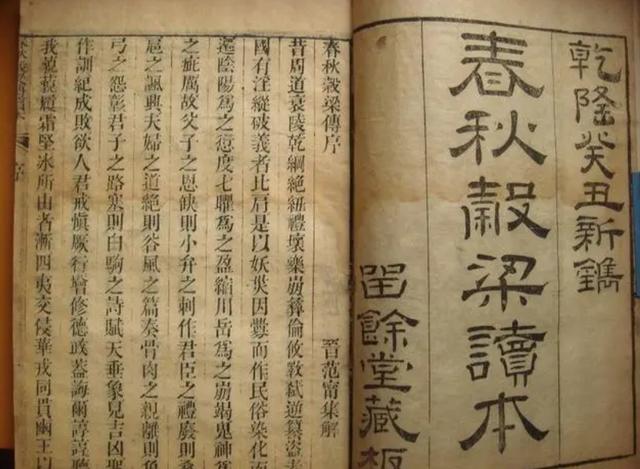 乾隆癸丑新鐫
春秋穀梁讀本
閏餘堂藏板
春秋穀梁傳序
晉范甯集解
昔周道衰陵乾綱絕紐禮壞樂崩彝倫攸斁弑逆簒盗
國有淫縱破義者比肩是以妖災因釁而作民俗染化而
遷陰陽為之愆度七曜為之盈縮川岳為之崩竭鬼神
之疵厲故父子之恩缺則小弁之刺作君臣之禮廢則桑
扈之諷興夫婦之道絕則谷風之篇奏骨肉之親離則角
弓之怨彰君子之路塞則白駒之詩賦天垂象見吉凶聖
作訓紀成敗欲人君戒慎厥行增修德政蓋誨爾諄諄聽
我藐藐履霜堅氷所由者漸四夷交侵華戎同貫幽王以